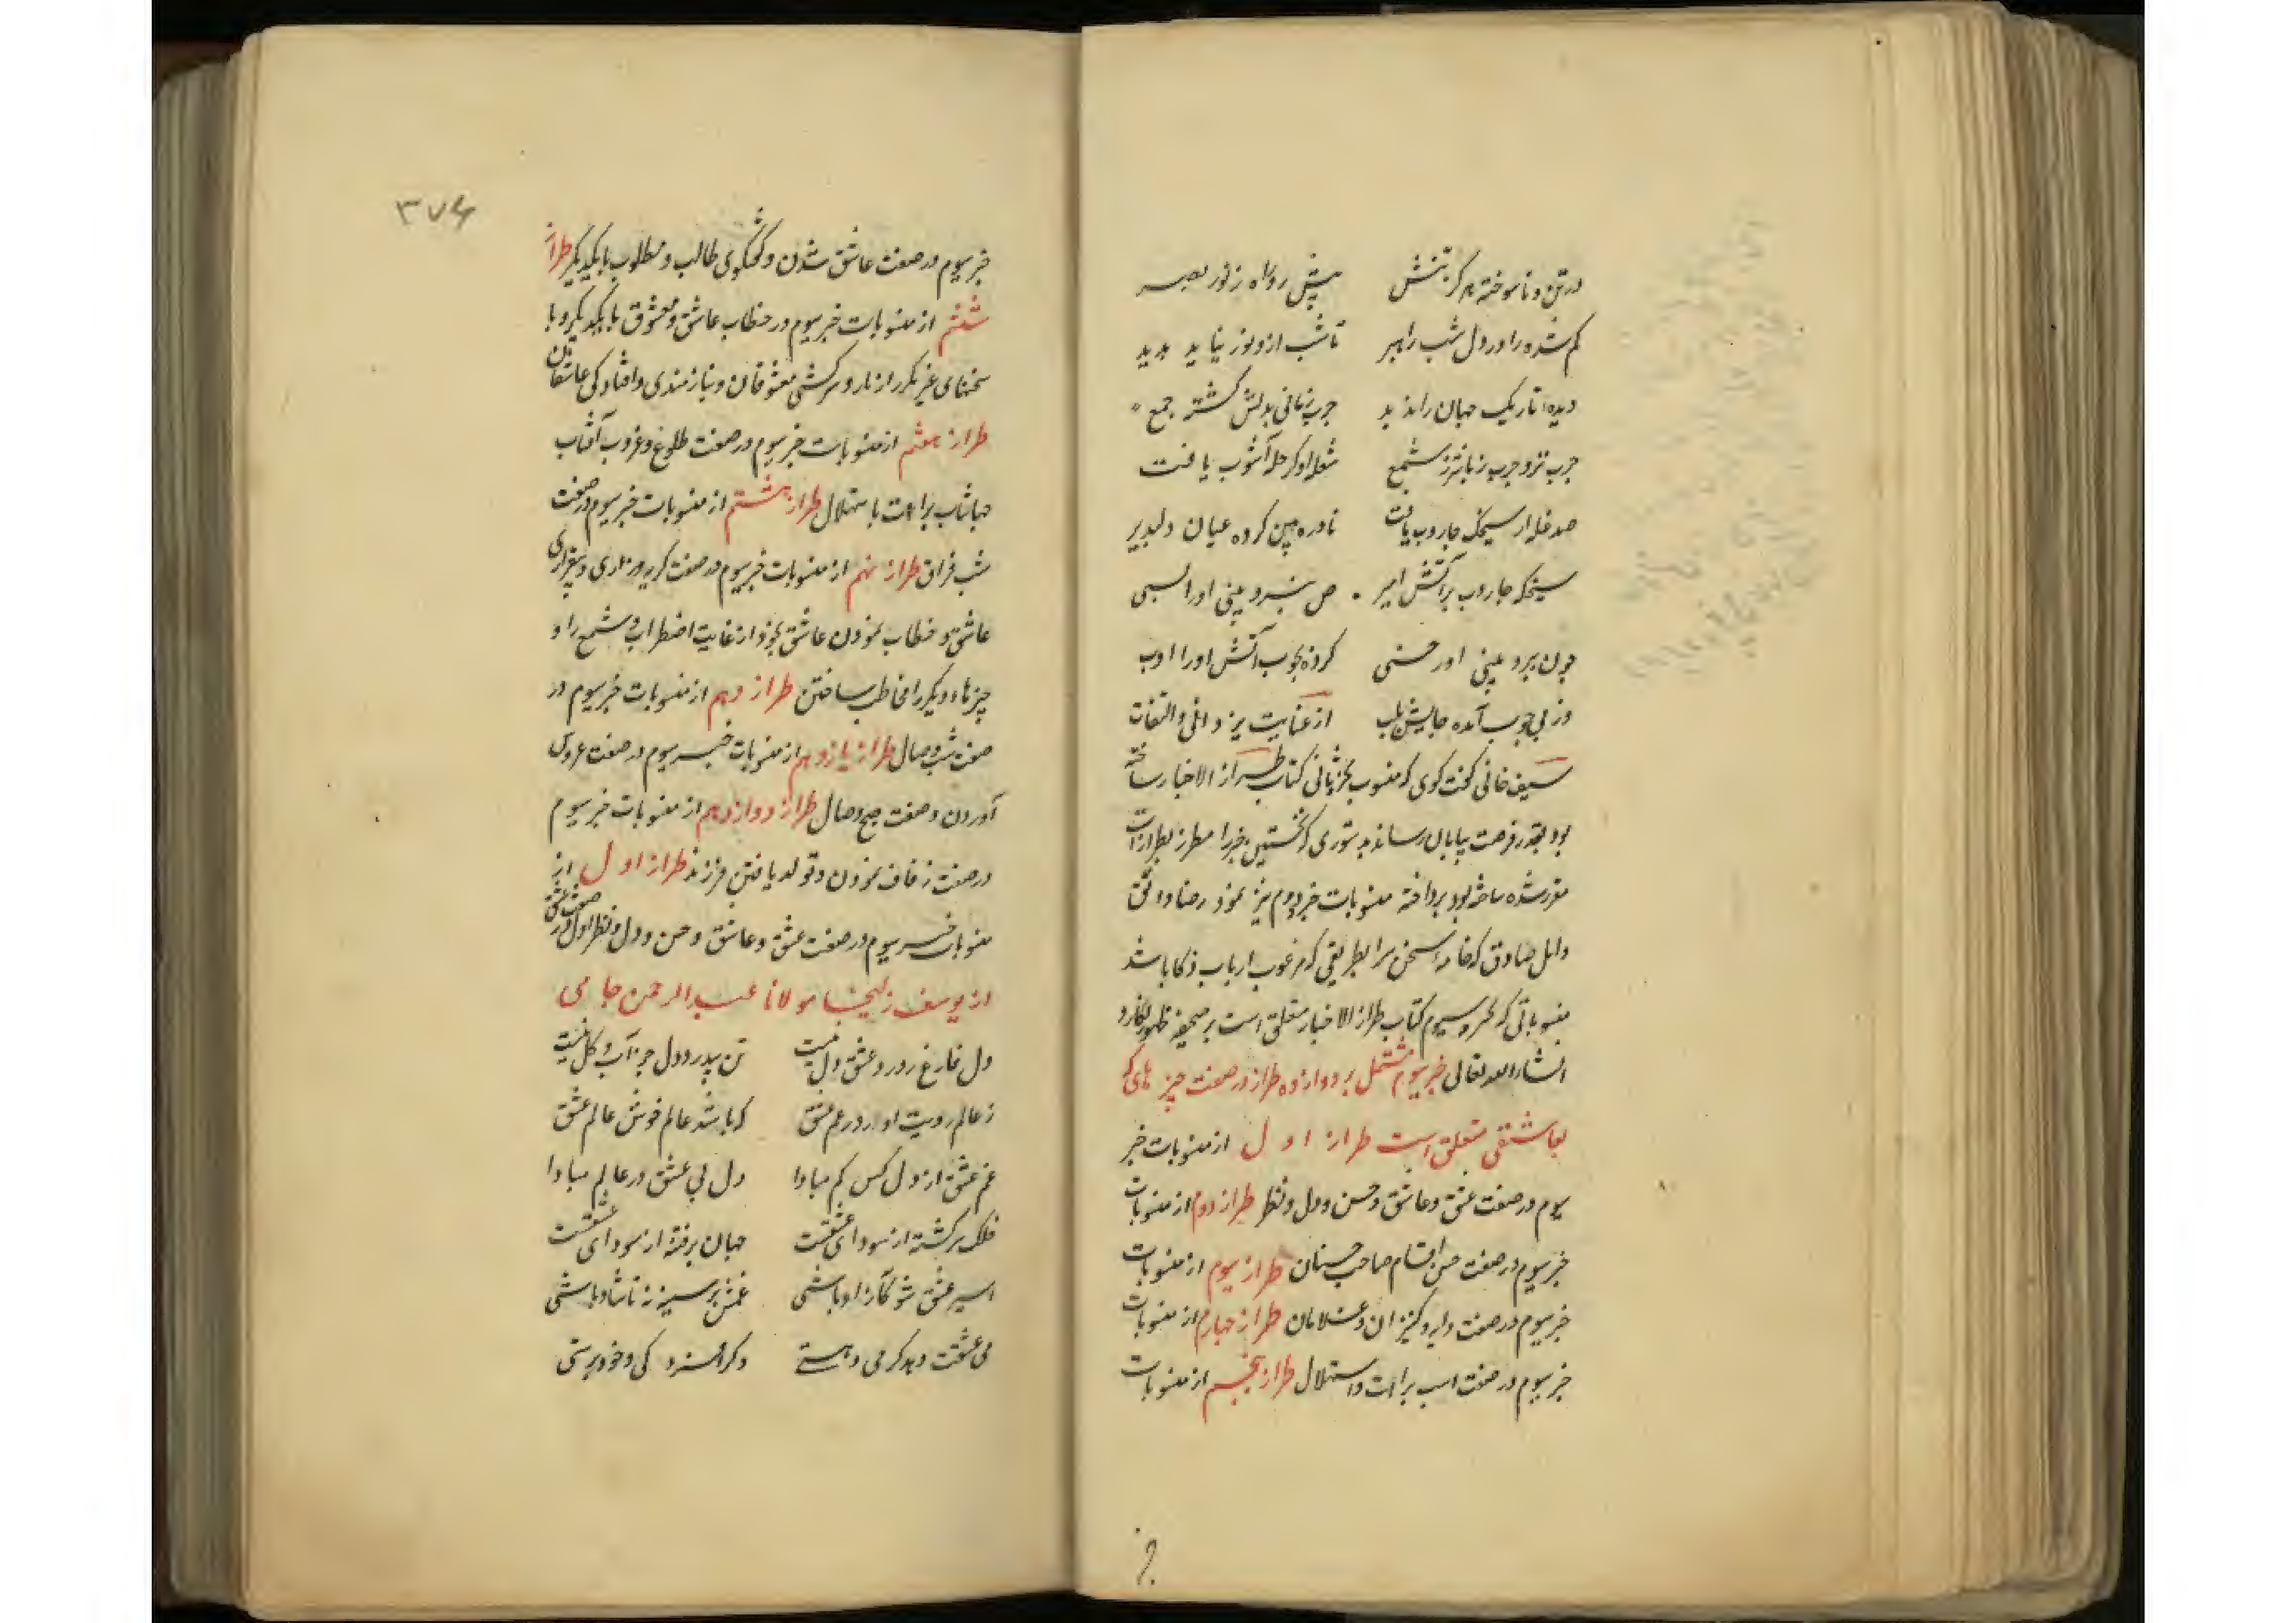 در تن و ناسوخته هر کز تنش پیش رو راه ز نور بصر
کم شده را در دل شب راهبر تا شب ازو نور نیاید پدید
دیده تاریک جهان را ندید چرب زبانی بدلش کشته جمع
چرب تر و چرب زبانتر ز شمع شعله او کر حله آشوب یافت
صد خله از سیخک جاروب یافت نادره بین کرده عیان دلپذیر
سیخک جاروب بر آتش امیر
چون ببرد بینی او را خسی کرده بچوب آتش او را ادب
وز پی چوب آمده جانش بلب از عنایت یزدانی و التفات
سیف خانی کفت کوی که منسوب بجزو ثانی کتاب طراز الاخبار ساخته
بود بقدر فرصت بپایان رساند بدستوری که نخستین خبر را مطرز بطرازات
مقرر شده ساخته بود پرداخته منسوبات خبر دوم نیز نمود رضا واثق
و امل صادق که خامه سخن سرا بطریقی که مرغوب ارباب ذکا باشد
منسوباتی که بخبر سیوم کتاب طراز الاخبار متعلق است بر صحیفه ظهور نکارد
انشاء الله تعالی خبر سیوم مشتمل بر دوازده طراز در صفت چیز های که
بعاشقی متعلق است طراز اول از منسوبات خبر
سیوم در صفت عشق و عاشق و حسن و دل و نظر طراز دوم از منسوبات
خبر سیوم در صفت حسن اقسام صاحب حسنان طراز سیوم از منسوبات
خبر سیوم در صفت دایه و کنیزان و غلامان طراز چهارم از منسوبات
خبر سیوم در صفت اسب براءت و استهلال طراز پنجم از منسوبات
۳۷۶
خبر سیوم در صفت عاشق شدن و کفتکوی طالب و مطلوب با یکدیکر طراز
ششم از منسوبات خبر سیوم در خطاب عاشق و معشوق با یکدیکر و با
سخنهای غیر مکرر از ناز و سرکشی معشوقان و نیازمندی و افتادکی عاشقان
طراز هفتم از منسوبات خبر سیوم در صفت طلوع و غروب آفتاب
جهانتاب براءت با ستهلال طراز هشتم از منسوبات خبر سیوم در صفت
شب فراق طراز نهم از منسوبات خبر سیوم در صفت کریه و زاری و بیقراری
عاشق و خطاب نمودن عاشق بخود از غایت اضطراب و شمع را و
چیزهاء دیکر را مخاطب ساختن طراز دهم از منسوبات خبر سیوم در
صفت شب وصال طراز یازدهم از منسوبات خبر سیوم در صفت عروس
آوردن و صفت صبح وصال طراز دوازدهم از منسوبات خبر سیوم
در صفت زفاف نمودن و تولد یافتن فرزند طراز اول از
منسوبات خبر سیوم در صفت عشق و عاشق و حسن و دل و نظر اول در صفت عشق
از یوسف زلیخا مولانا عبد الرحمن جامی
دل فارغ ز درد عشق دل نیست تن بیدرد دل جز آب و کل نیست
ز عالم رویت اور در غم عشق که باشد عالم خوش عالم عشق
غم عشق از دل کس کم مبادا دل بی عشق در عالم مبادا
فلک سرکشته از سودای عشقست جهان پرفتنه از سودای عشقست
اسیر عشق شو کآزاد باشی غمش بر سینه نه تا شاد باشی
می عشقت دهد کرمی و مستی دکر افسردکی و خودپرستی